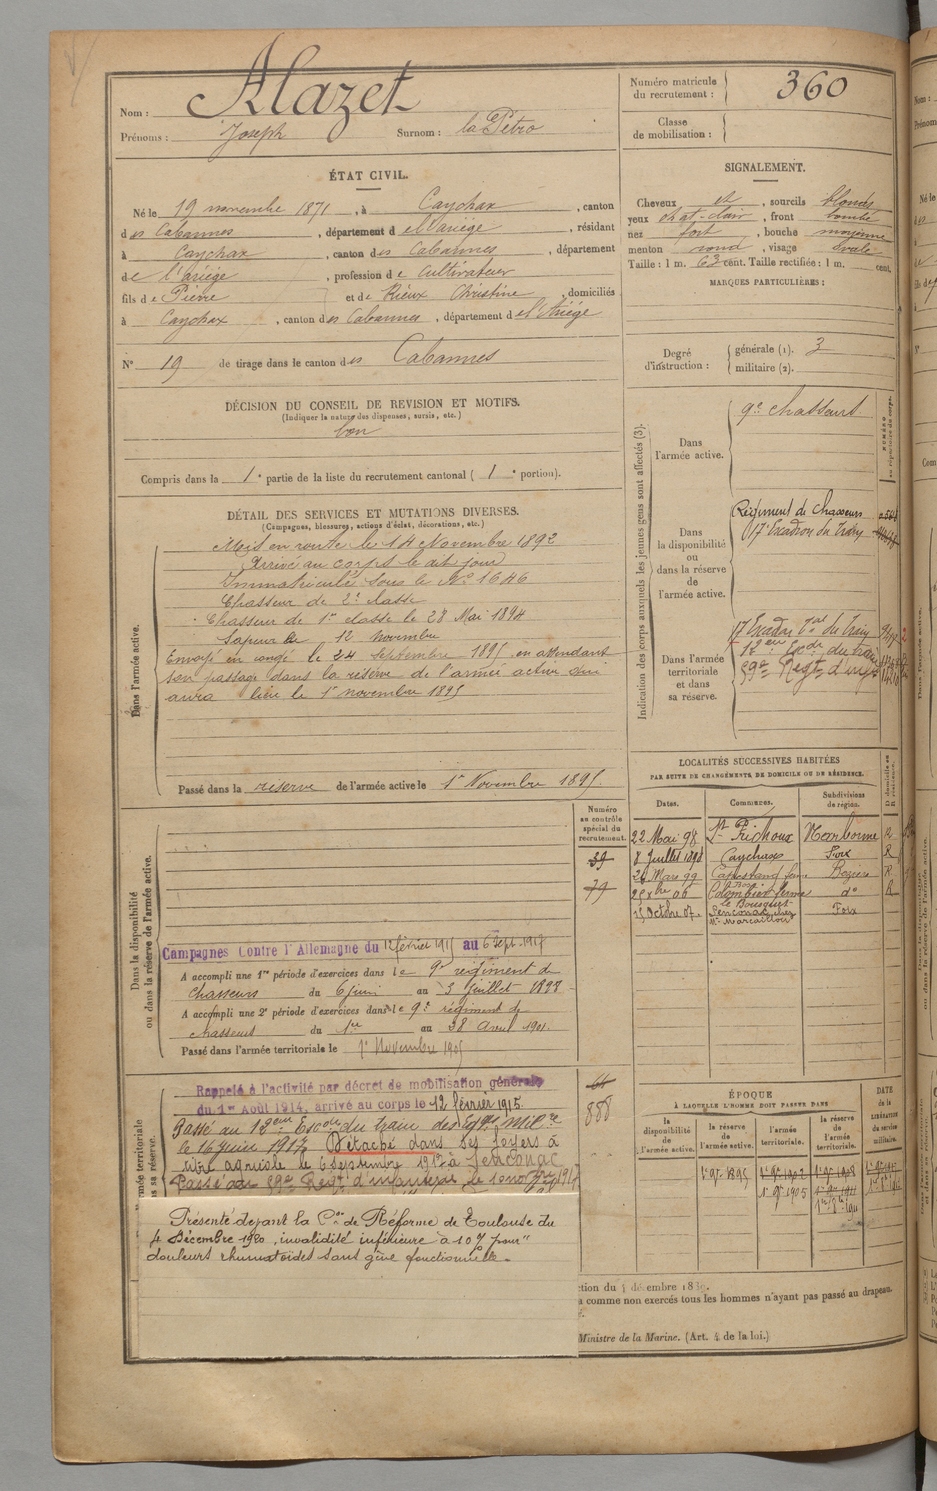 Nom : Alazet
Prénoms : Joseph Surnom : la Pétro
Numéro matricule du recrutement : 360
Classe de mobilisation :
ÉTAT CIVIL.
Né le 19 novembre 1871, à Caychax, canton
des Cabannes, département de l'Ariège, résidant
à Caychax, canton des Cabannes, département
de l'Ariège, profession de Cultivateur
fils de Pierre et de Rieux Christine, domiciliés
à Caychax, canton des Cabannes, département de l'Ariège
N° 19 de tirage dans le canton des Cabannes
SIGNALEMENT.
Cheveux et, sourcils blonds
yeux chat-clair, front bombé
nez fort, bouche moyenne
menton rond, visage ovale
Taille : 1 m. 63 cent. Taille rectifiée : 1 m. cent.
MARQUES PARTICULIÈRES :
Degré d'instruction : générale (1). 3
militaire (2).
DÉCISION DU CONSEIL DE REVISION ET MOTIFS.
(Indiquer la nature des dispenses, sursis, etc.)
bon
Compris dans la 1e partie de la liste du recrutement cantonal ( 1e portion).
DÉTAIL DES SERVICES ET MUTATIONS DIVERSES.
(Campagnes, blessures, actions d'éclat, décorations, etc.)
Dans l'armée active.
Mis en route le 14 Novembre 1892
Arrivé au corps le dit jour
Immatriculé sous le N° 1646
Chasseur de 2e classe
Chasseur de 1re classe le 28 Mai 1894
Sapeur le 12 novembre
Envoyé en congé le 24 septembre 1895 en attendant
son passage dans la réserve de l'armée active qui
aura lieu le 1er novembre 1895
Passé dans la réserve de l'armée active le 1er Novembre 1895
Indication des corps auxquels les jeunes gens sont affectés (3).
NUMÉRO au répertoire du corps.
Dans l'armée active.
9e Chasseurs
Dans la disponibilité ou dans la réserve de l'armée active.
Régiment de Chasseurs
17e Escadron du Train
Dans l'armée territoriale et dans sa réserve.
17 Escadron Tal du Train
18eme Escon du train
59e Regt d'infie
LOCALITÉS SUCCESSIVES HABITÉES
PAR SUITE DE CHANGEMENTS DE DOMICILE OU DE RÉSIDENCE.
Dates. Communes. Subdivisions de région. D. domicile ou R. résidence.
22 Mai 98 Narbonne R
8 Juillet 1898 Caychax Foix R
26 Mars 99 Capestang Béziers R
06 Colombiers d° R
15 Octobre 07 Senconac Foix
Dans la disponibilité ou dans la réserve de l'armée active.
Numéro au contrôle spécial du recrutement.
39
79
Campagnes Contre l'Allemagne du 12 février 1915 au 6 Sept. 1917
A accompli une 1re période d'exercices dans le 9e régiment de
Chasseurs du 6 juin au 3 Juillet 1898
A accompli une 2e période d'exercices dans le 9e régiment de
chasseurs du 1er au 28 Avril 1901.
Passé dans l'armée territoriale le 1er Novembre 1905
Rappelé à l'activité par décret de mobilisation générale
du 1er Août 1914, arrivé au corps le 12 février 1915.
Passé au 18eme Escon du train des Eqges Milres
le 16 juin 1917 Détaché dans ses foyers à
titre agricole le 6 septembre 1917 à Senconac
Passé au 59e Regt d'infanterie le 1er 1917
888
ÉPOQUE
À LAQUELLE L'HOMME DOIT PASSER DANS
la disponibilité de l'armée active. la réserve de l'armée active. l'armée territoriale. la réserve de l'armée territoriale.
DATE de la LIBÉRATION du service militaire.
1er 9bre 1895 1er 9bre 1902 1er 9bre 1908
1er 9bre 1905
Présenté devant la Con de Réforme de Toulouse du
4 Décembre 1920, invalidité inférieure à 10% pour "
douleurs rhumatoïdes sans gêne fonctionnelle.
ction du décembre 1889.
comme non exercés tous les hommes n'ayant pas passé au drapeau.
Ministre de la Marine. (Art. 4 de la loi.)